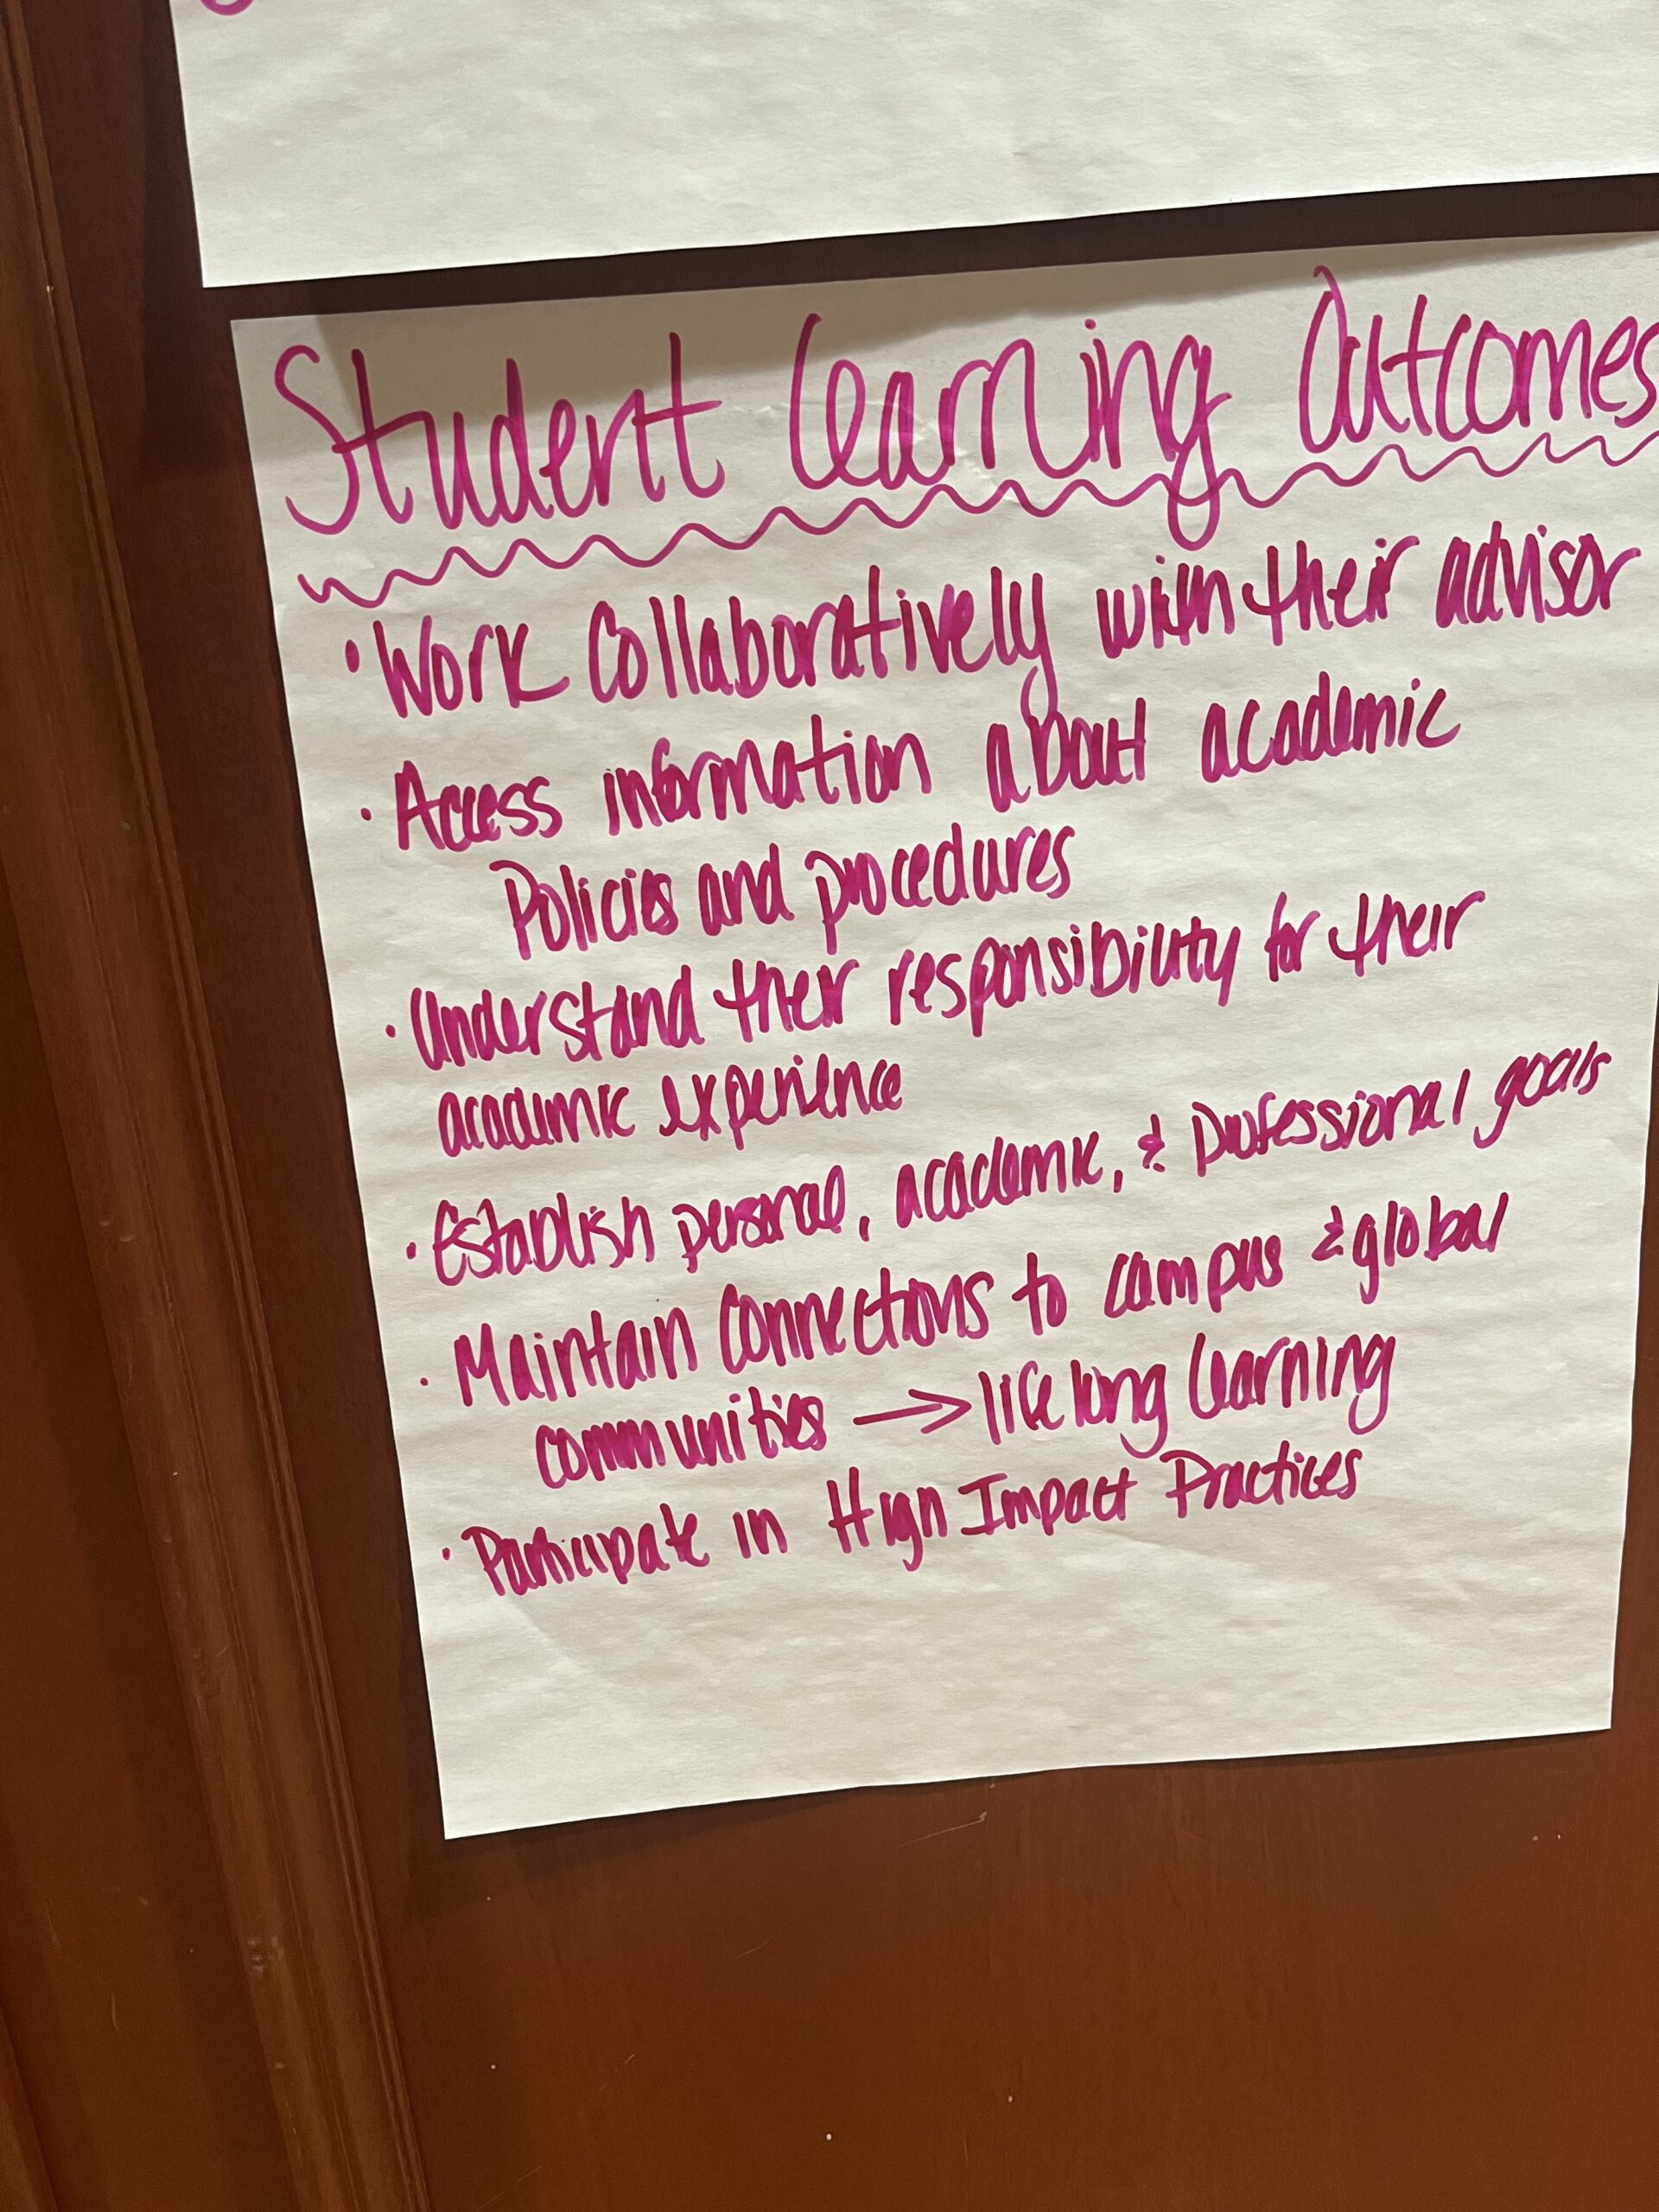 Student Learning Outcomes
• Work Collaboratively with their advisor
• Access information about academic
Policies and procedures
• Understand their responsibility for their
academic experience
• Establish personal, academic, & professional goals
• Maintain Connections to campus & global
communities → lifelong learning
• Participate in High Impact Practices